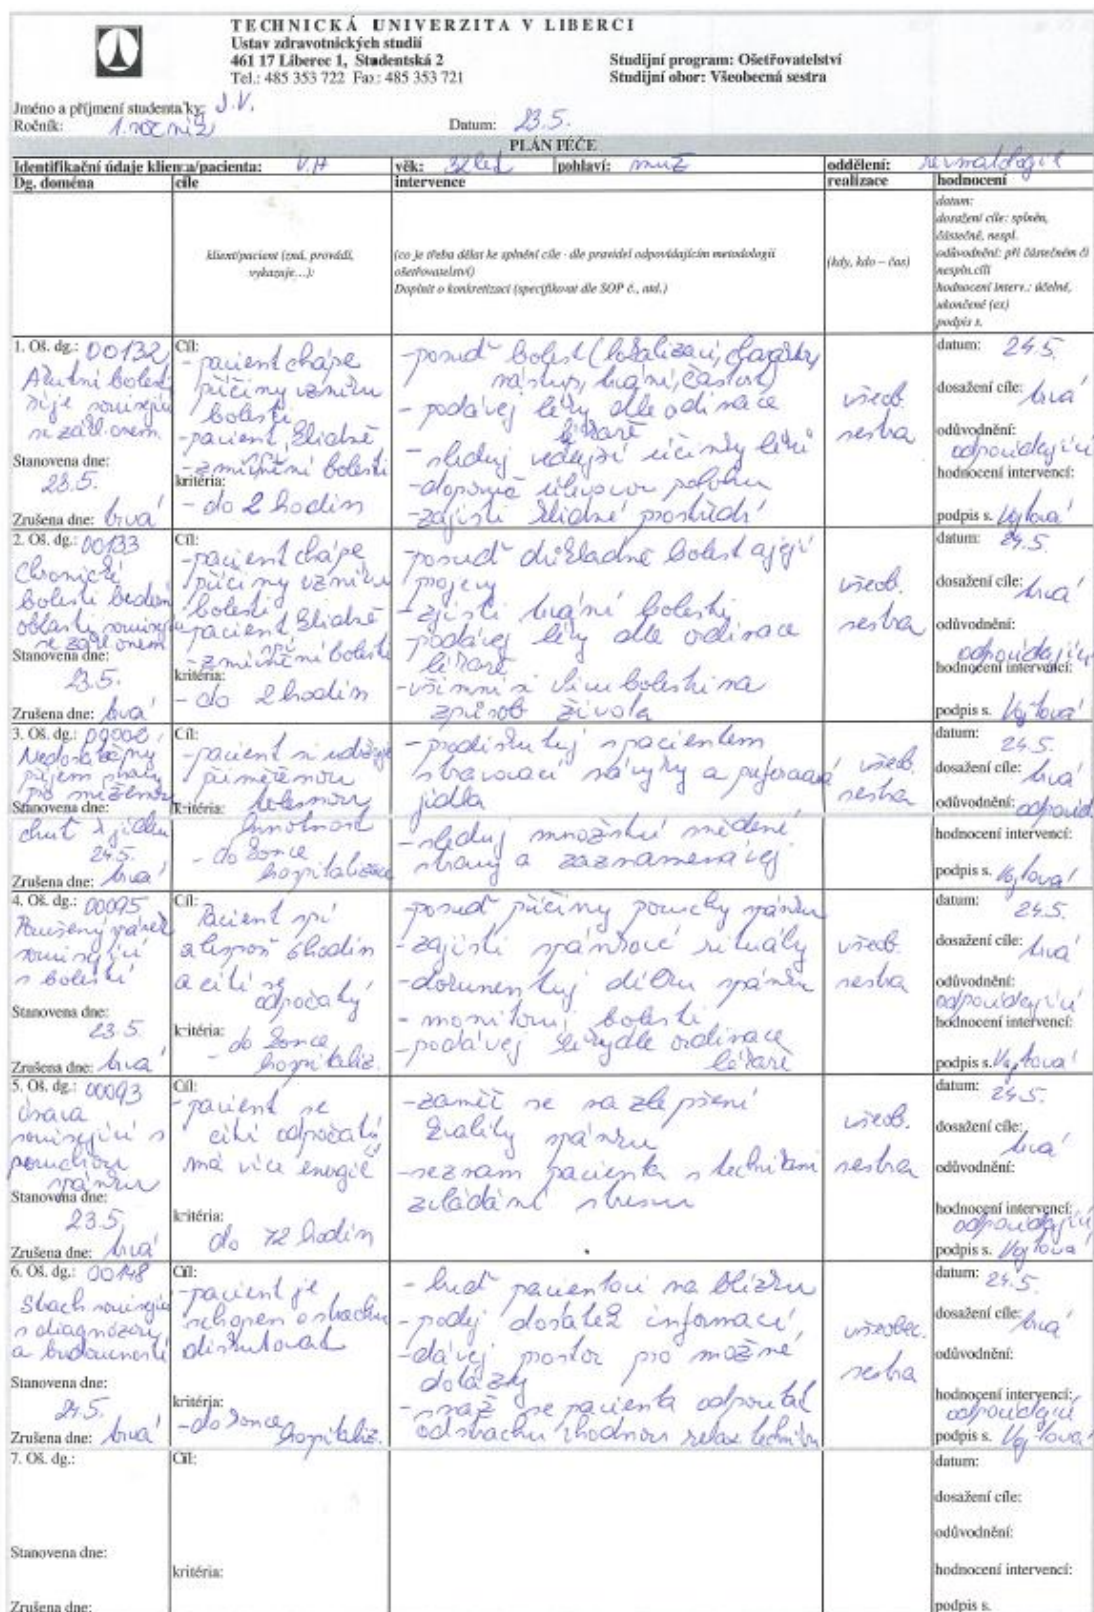 TECHNICKÁ UNIVERZITA V LIBERCI
Ústav zdravotnických studií
461 17 Liberec 1, Studentská 2
Tel.: 485 353 722 Fax: 485 353 721
Studijní program: Ošetřovatelství
Studijní obor: Všeobecná sestra
Jméno a příjmení studenta/ky: J.V.
Ročník: 1. ročník
Datum: 23.5.
PLÁN PÉČE
Identifikační údaje klienta/pacienta: V.H věk: let pohlaví: muž oddělení: revmatologie
Dg. doména cíle intervence realizace hodnocení
klient/pacient (zná, provádí,
vykazuje…):
(co je třeba dělat ke splnění cíle - dle pravidel odpovídajícím metodologii
ošetřovatelství)
Doplnit o konkretizaci (specifikovat dle SOP č., atd.)
(kdy, kdo – čas)
datum:
dosažení cíle: splněn,
částečně, nespl.
odůvodnění: při částečném či
nespln.cíli
hodnocení interv.: účelné,
ukončené (ex)
podpis s.
1. Oš. dg.: 00132
Akutní bolest
související
se zákl. onem.
Stanovena dne:
23.5.
Zrušena dne: trvá
Cíl:
- pacient chápe
příčiny vzniku
bolesti
- pacient klidně
spí
- zmírnění bolesti
kritéria:
- do 2 hodin
- posuď bolest (lokalizaci, charakter,
nástup, trvání, častost)
- podávej léky dle ordinace
lékaře
- sleduj vedlejší účinky léků
- doporuč úlevovou polohu
- zajisti klidné prostředí
všeob.
sestra
datum: 24.5.
dosažení cíle: trvá
odůvodnění:
odpovídající
hodnocení intervencí:
podpis s. Vojtová
2. Oš. dg.: 00133
Chronická
bolest bederní
oblasti související
se zákl. onem
Stanovena dne:
23.5.
Zrušena dne: trvá
Cíl:
- pacient chápe
příčiny vzniku
bolesti
- pacient klidně
spí
- zmírnění bolesti
kritéria:
- do 2 hodin
- posuď důkladně bolest a její
projevy
- zjisti trvání bolesti
- podávej léky dle ordinace
lékaře
- všimni si vlivu bolesti na
způsob života
všeob.
sestra
datum: 24.5.
dosažení cíle: trvá
odůvodnění:
odpovídající
hodnocení intervencí:
podpis s. Vojtová
3. Oš. dg.: 00002
Nedostatečný
příjem stravy
pro sníženou
Stanovena dne:
chuť k jídlu
24.5.
Zrušena dne: trvá
Cíl:
- pacient si udržuje
přiměřenou
Kritéria: tělesnou
hmotnost
- do konce
hospitalizace
- prodiskutuj s pacientem
stravovací návyky a preferovaná
jídla
- sleduj množství snědené
stravy a zaznamenávej
všeob.
sestra
datum:
24.5.
dosažení cíle: trvá
odůvodnění: odpovíd.
hodnocení intervencí:
podpis s. Vojtová
4. Oš. dg.: 00095
Porušený spánek
související
s bolestí
Stanovena dne:
23.5.
Zrušena dne: trvá
Cíl:
Pacient spí
alespoň 6hodin
a cítí se
odpočatý
kritéria:
- do konce
hospitaliz.
- posuď příčiny poruchy spánku
- zajisti spánkové rituály
- dokumentuj délku spánku
- monitoruj bolesti
- podávej léky dle ordinace
lékaře
všeob.
sestra
datum:
24.5.
dosažení cíle: trvá
odůvodnění:
odpovídající
hodnocení intervencí:
podpis s. Vojtová
5. Oš. dg.: 00093
Únava
související s
poruchou
spánku
Stanovena dne:
23.5.
Zrušena dne: trvá
Cíl:
- pacient se
cítí odpočatý
má více energie
kritéria:
do 72 hodin
- zaměř se na zlepšení
kvality spánku
- seznam pacienta s technikami
zvládání stresu
všeob.
sestra
datum:
24.5.
dosažení cíle:
trvá
odůvodnění:
hodnocení intervencí:
odpovídající
podpis s. Vojtová
6. Oš. dg.: 00148
Strach související
s diagnózou
a budoucností
Stanovena dne:
24.5.
Zrušena dne: trvá
Cíl:
- pacient je
schopen o strachu
diskutovat
kritéria:
- do konce
hospitaliz.
- buď pacientovi na blízku
- podej dostatek informací
- dávej prostor pro možné
dotazy
- snaž se pacienta odpoutat
od strachu vhodnou relax. technikou
všeobec.
sestra
datum: 24.5.
dosažení cíle: trvá
odůvodnění:
hodnocení intervencí:
odpovídající
podpis s. Vojtová
7. Oš. dg.:
Stanovena dne:
Zrušena dne:
Cíl:
kritéria:
datum:
dosažení cíle:
odůvodnění:
hodnocení intervencí:
podpis s.